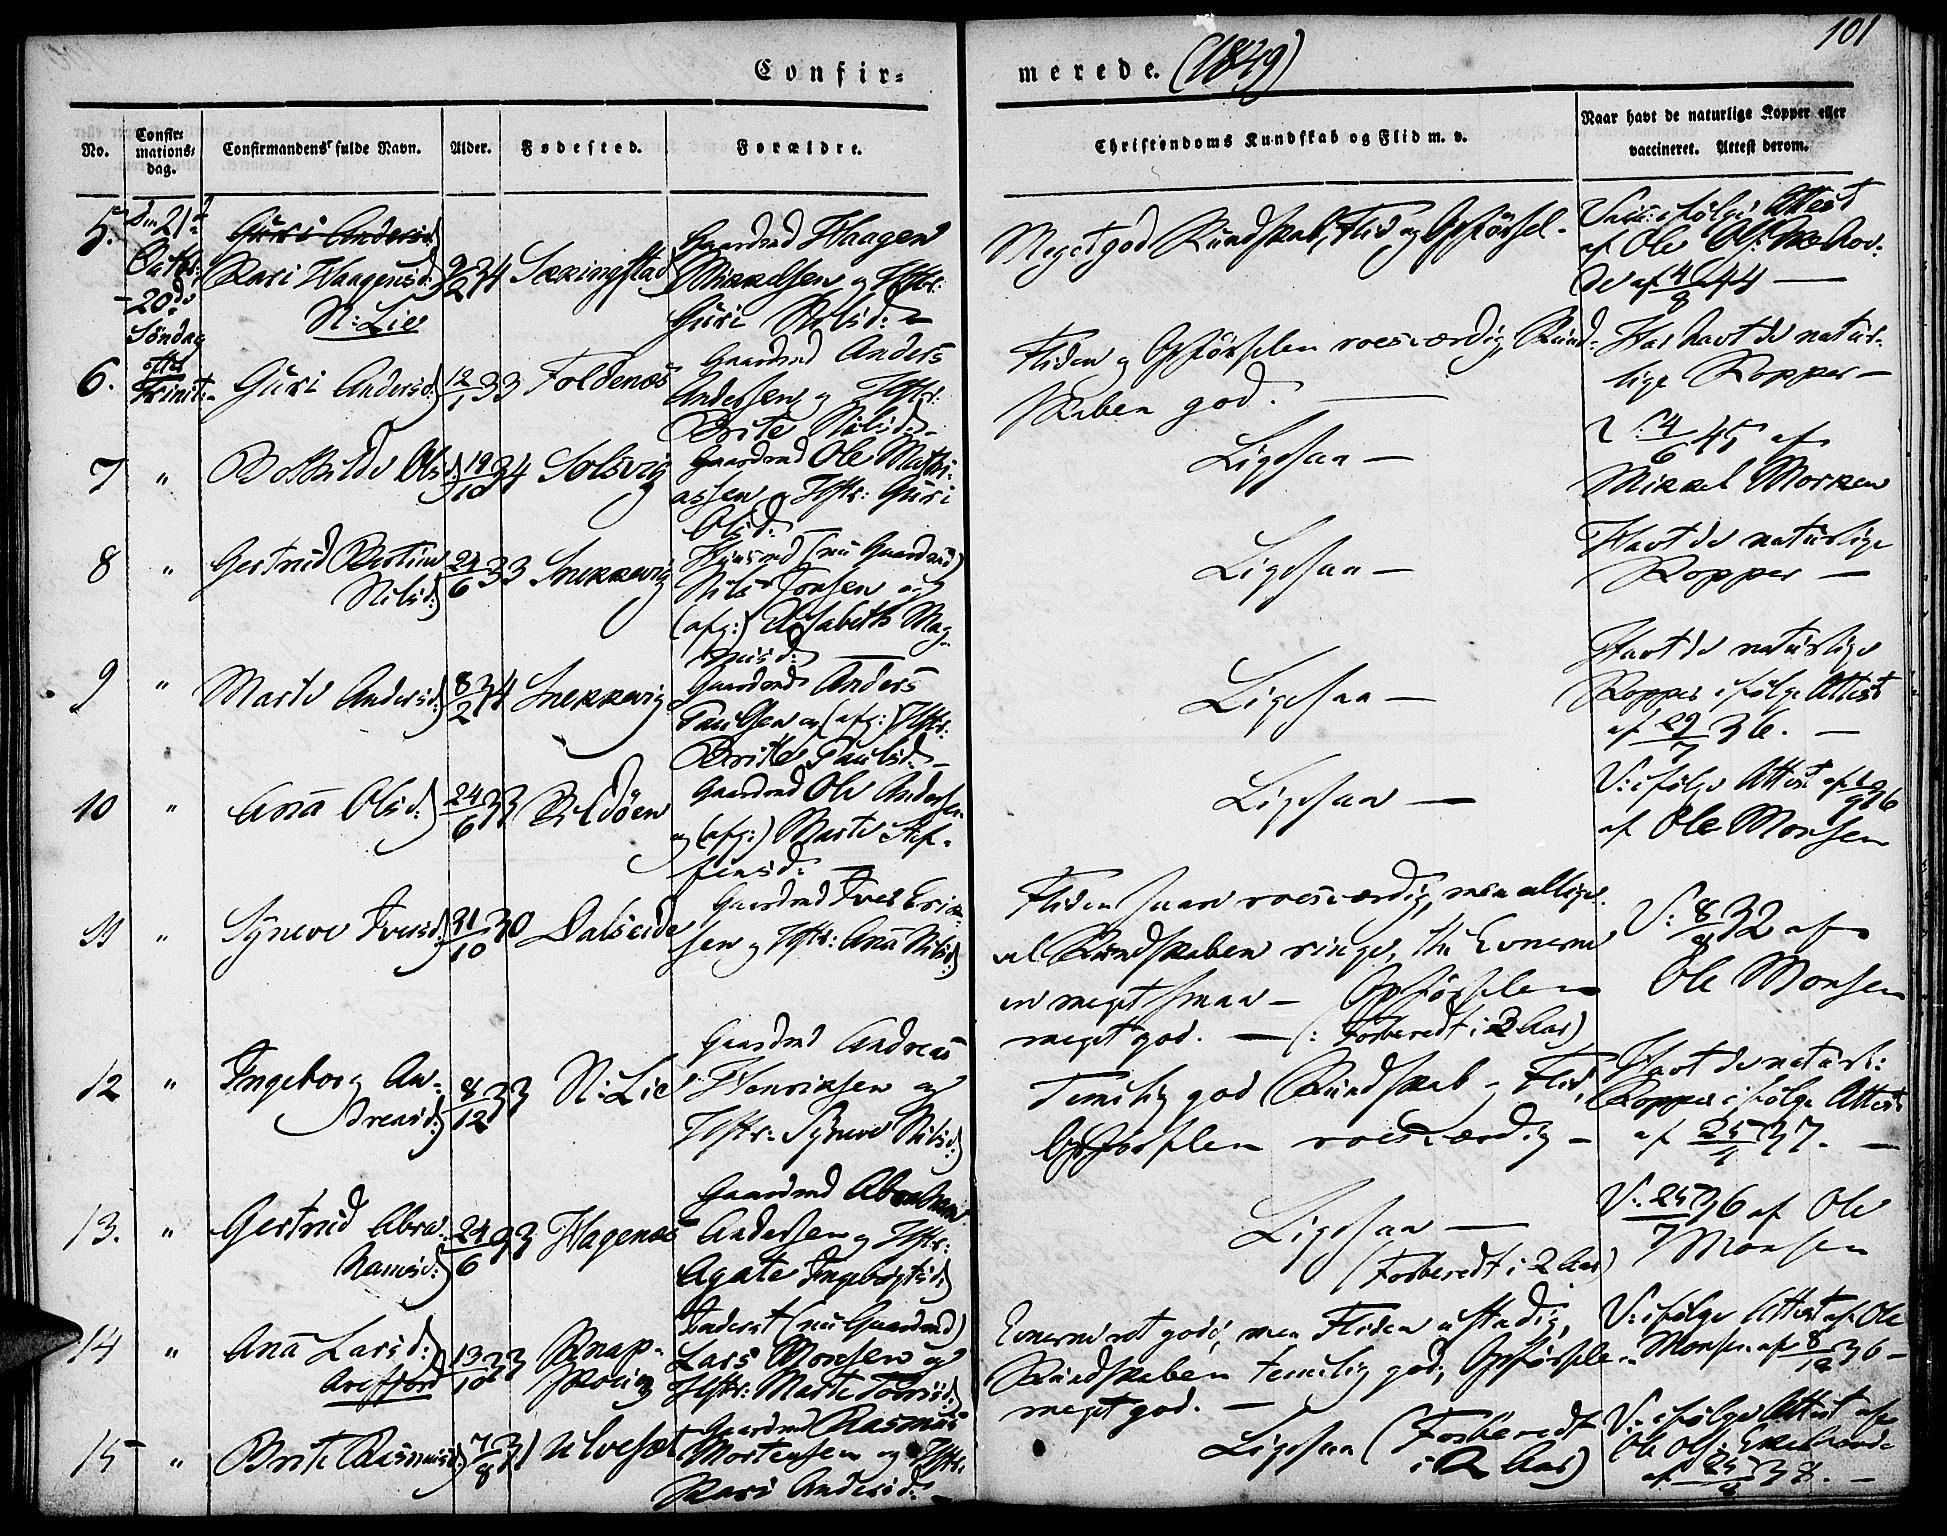 101
Confir- merede. (1849)
No. Confirmations-dag. Confirmandens fulde Navn. Alder. Fødested. Forældre. Christendoms Kundskab og Flid m. v. Naar havt de naturlige Kopper eller vaccineret. Attest derom.
5. Den 21de Octbr: 20de Søndag efter Trinit:
Guri Andersd:
Kari Haagensd: N: Lie
2/2 34
Skingstad
Gaardmd Haagen
Mikkelsen og Hstr:
Guri Nilsd:
Meget god Kundskab, Flid og Opførsel.
Vacc: ifølge Attest
af Ole Ols:
de af 4/8 44 —
6. Guri Andersd:
12/1 33
Foldenæs
Gaardmd Anders
Andersen og Hstr:
Brite Nilsd:
Fliden og Opførselen roesværdig, Kund-
skaben god. —
Har havt de natur-
lige Kopper —
7 " Bothilde Olsd:
19/10 34
Solsvig
Gaardmd Ole Mathi-
assen og Hstr: Guri
Olsd:
Ligesaa —
V: 4/6 45 af
Mikkel Morken
8 " Gertrud Bertine
Nilsd:
24/6 33
Snekkevig
Huusmd (nu Gaardmd)
Nils Jonsen og
(afg:) Elisabeth Mag-
nusd:
Ligesaa —
Havt de naturlige
Kopper —
9 " Marte Andersd:
8/2 34
Snekkevig
Gaardmd Anders
Paulsen og (afg:) Hstr:
Brite Paulsd:
Ligesaa —
Havt de naturlige
Kopper ifølge Attest
af 29/7 36. —
10 " Anna Olsd:
24/6 33
Bildøen
Gaardmd Ole Andersen
og (afg:) Marte Stef-
fensd:
Ligesaa —
V: ifølge Attest af
af Ole Monsen
11 " Synneve Iversd:
21/10 30
Dalseide
Gaardmd Iver Erik-
sen og Hstr: Anna Nilsd:
Fliden saare roesværdig, men allige-
vel Kundskaben ringe, thi Evnerne
er meget smaa — Opførselen
meget god. — (: Forberedt i 3 Aar)
V: 8/8 32 af
Ole Monsen
12 " Ingeborg An-
dreasd:
8/12 33
N: Lie
Gaardmd Andreas
Henriksen og
Hstr: Synneve Nilsd:
Temelig god Kundskab og Flid,
Opførselen roesværdig —
Havt de naturl:
Kopper ifølge Attest
af 25/7 37. —
13. " Gertrud Abra-
hamsd:
24/6 33
Hagenæs
Gaardmd Abraham
Andersen og Hstr:
Agate Ingebrigtsd:
Ligesaa —
(Forberedt i 2 Aar)
V: 25/7 36 af Ole
Monsen
14 " Anna Larsd:
Arefjord
13/10 33
Knap-
skoug
Inderst (nu Gaardmd)
Lars Monsen og
Hstr: Marte Tomisd:
Evnerne ret gode, men Fliden ustadig,
Kundskaben temelig god; Opførselen
meget god. —
V: ifølge Attest af Ole
Monsen af 8/12 36 —
15 " Brite Rasmusd:
7/8 31
Ulvesæt
Gaardmd Rasmus
Mortensen og Hstr:
Kari Andersd:
Ligesaa (Forberedt
i 2 Aar)
V: ifølge Attest af
Ole Ols: